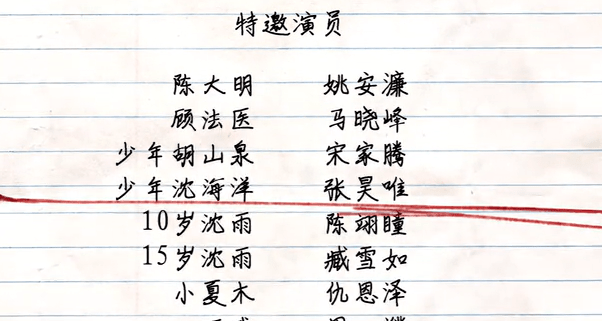 特邀演员
陈大明 姚安濂
顾法医 马晓峰
少年胡山泉 宋家腾
少年沈海洋 张昊唯
10岁沈雨 陈翊瞳
15岁沈雨 臧雪如
小夏木 仇恩泽